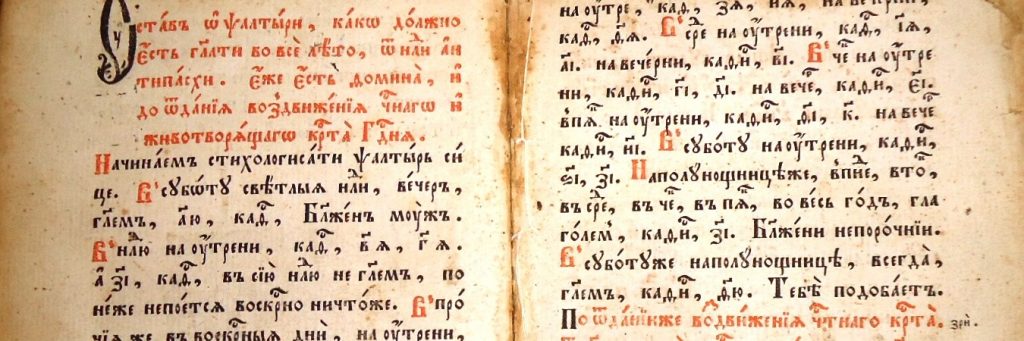 Ѹста́въ ѿ ѱалты́ри, ка́кѡ до́лжно
є҆́сть гл҃ати во всѐ лѣ́то, ѿ нл҃и а҆н
типа́схи. є҆́же є҆́сть ѳомина̀, и҆
до ѿда́нїѧ воздви́женїѧ чⷭ҇тна́гѡ и҆
животворѧ́щагѡ крⷭ҇та̀ гдⷭ҇нѧ.
Начина́емъ стихологиса́ти ѱалты́рь си́
це. В̾ субѡ́ту свѣ́тлыѧ нл҃и, ве́черъ,
гл҃емъ, а҃ю, каѳ, Бл҃же́нъ мꙋ́жъ.
В̾ нл҃ю на ѹ҆́трени, каѳ, в҃ѧ, г҃ѧ.
а҆ з҃і, каѳ, въ сїю̀ нл҃ю не гл҃емъ, по
не́же непое́тсѧ воскр҇но ничто́же. В̾ про́
чїѧ же въ воскр҇ныѧ дни̑, на ѹ҆́трени,
на ѹ҆́тре, каѳ, з҃ѧ, и҃ѧ, на вече́рни,
каѳ, ѳ҃ѧ. В̾ сре на ѹ҆́трени, каѳ, і҃ѧ,
а҃і. на вече́рни, каѳи, в҃і. В̾ че на ѹ҆́тре
ни, каѳи, г҃і, д҃і. на вече, каѳи, є҃і.
В̾ пѧ на ѹ҆́трени, каѳи, ѳ҃і, к҃. на вече
каѳи, и҃і. В̾ субо́ту на ѹ҆́трени, каѳи,
ѕ҃і, з҃і. Наполу́нощницѣже, в̾ пне, вто,
въ сре, въ че, въ пѧ, во ве́сь го́дъ, гла
го́лем, каѳи, з҃і. Бл҃же́ни непоро́чнїи.
В̾ субо́туже наполу́нощницѣ, всегда̀,
гл҃емъ, каѳи, ѳ҃ю. Тебѣ̀ подоба́етъ.
По ѿда́нїиже воздви́женїѧ чⷭ҇тна́го крⷭ҇та̀. зри̑.